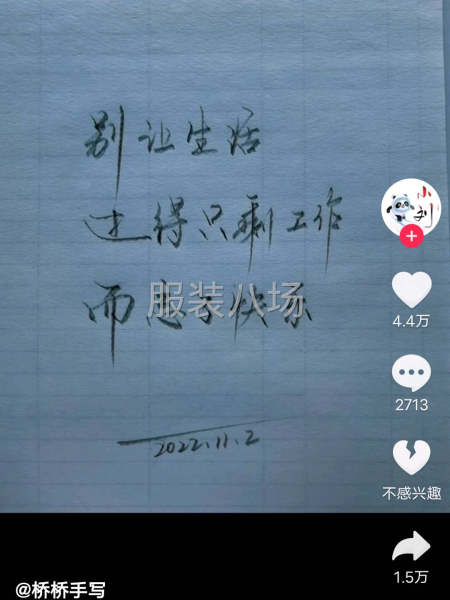 别让生活
过得只剩工作
而忘了快乐
2022.11.2
服装八场
小刘
4.4万
2713
不感兴趣
1.5万
@桥桥手写